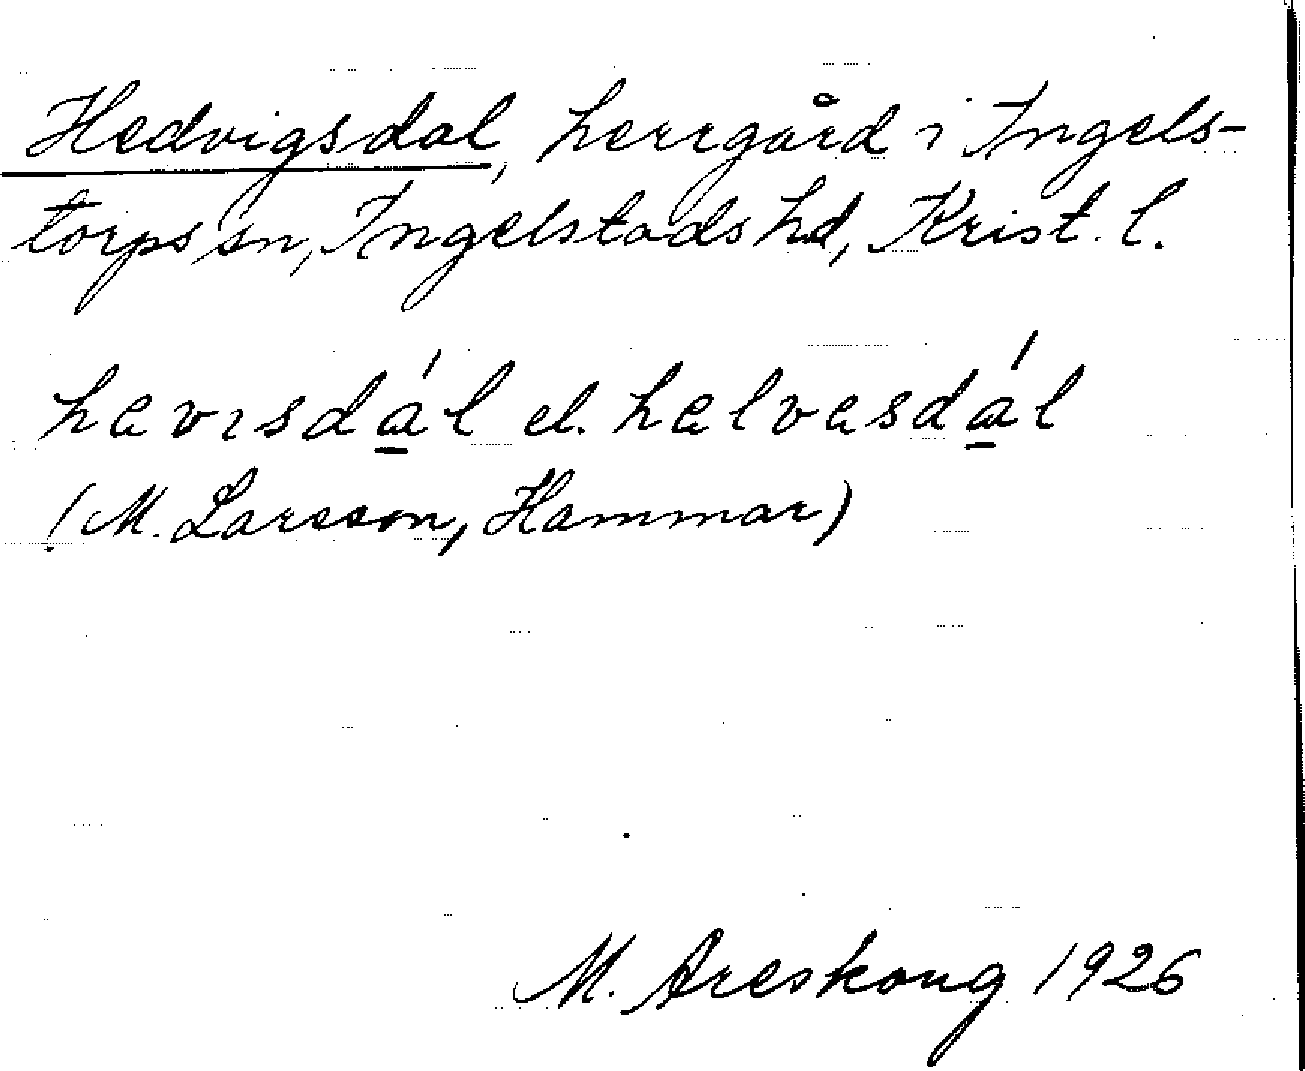 Hedvigsdal, herrgård i Ingels-
torps sn, Ingelstads hd, Krist. l.
hævısdá̲l el. hælvasdá̲l
(M. Larsson, Hammar)
M. Areskoug 1926